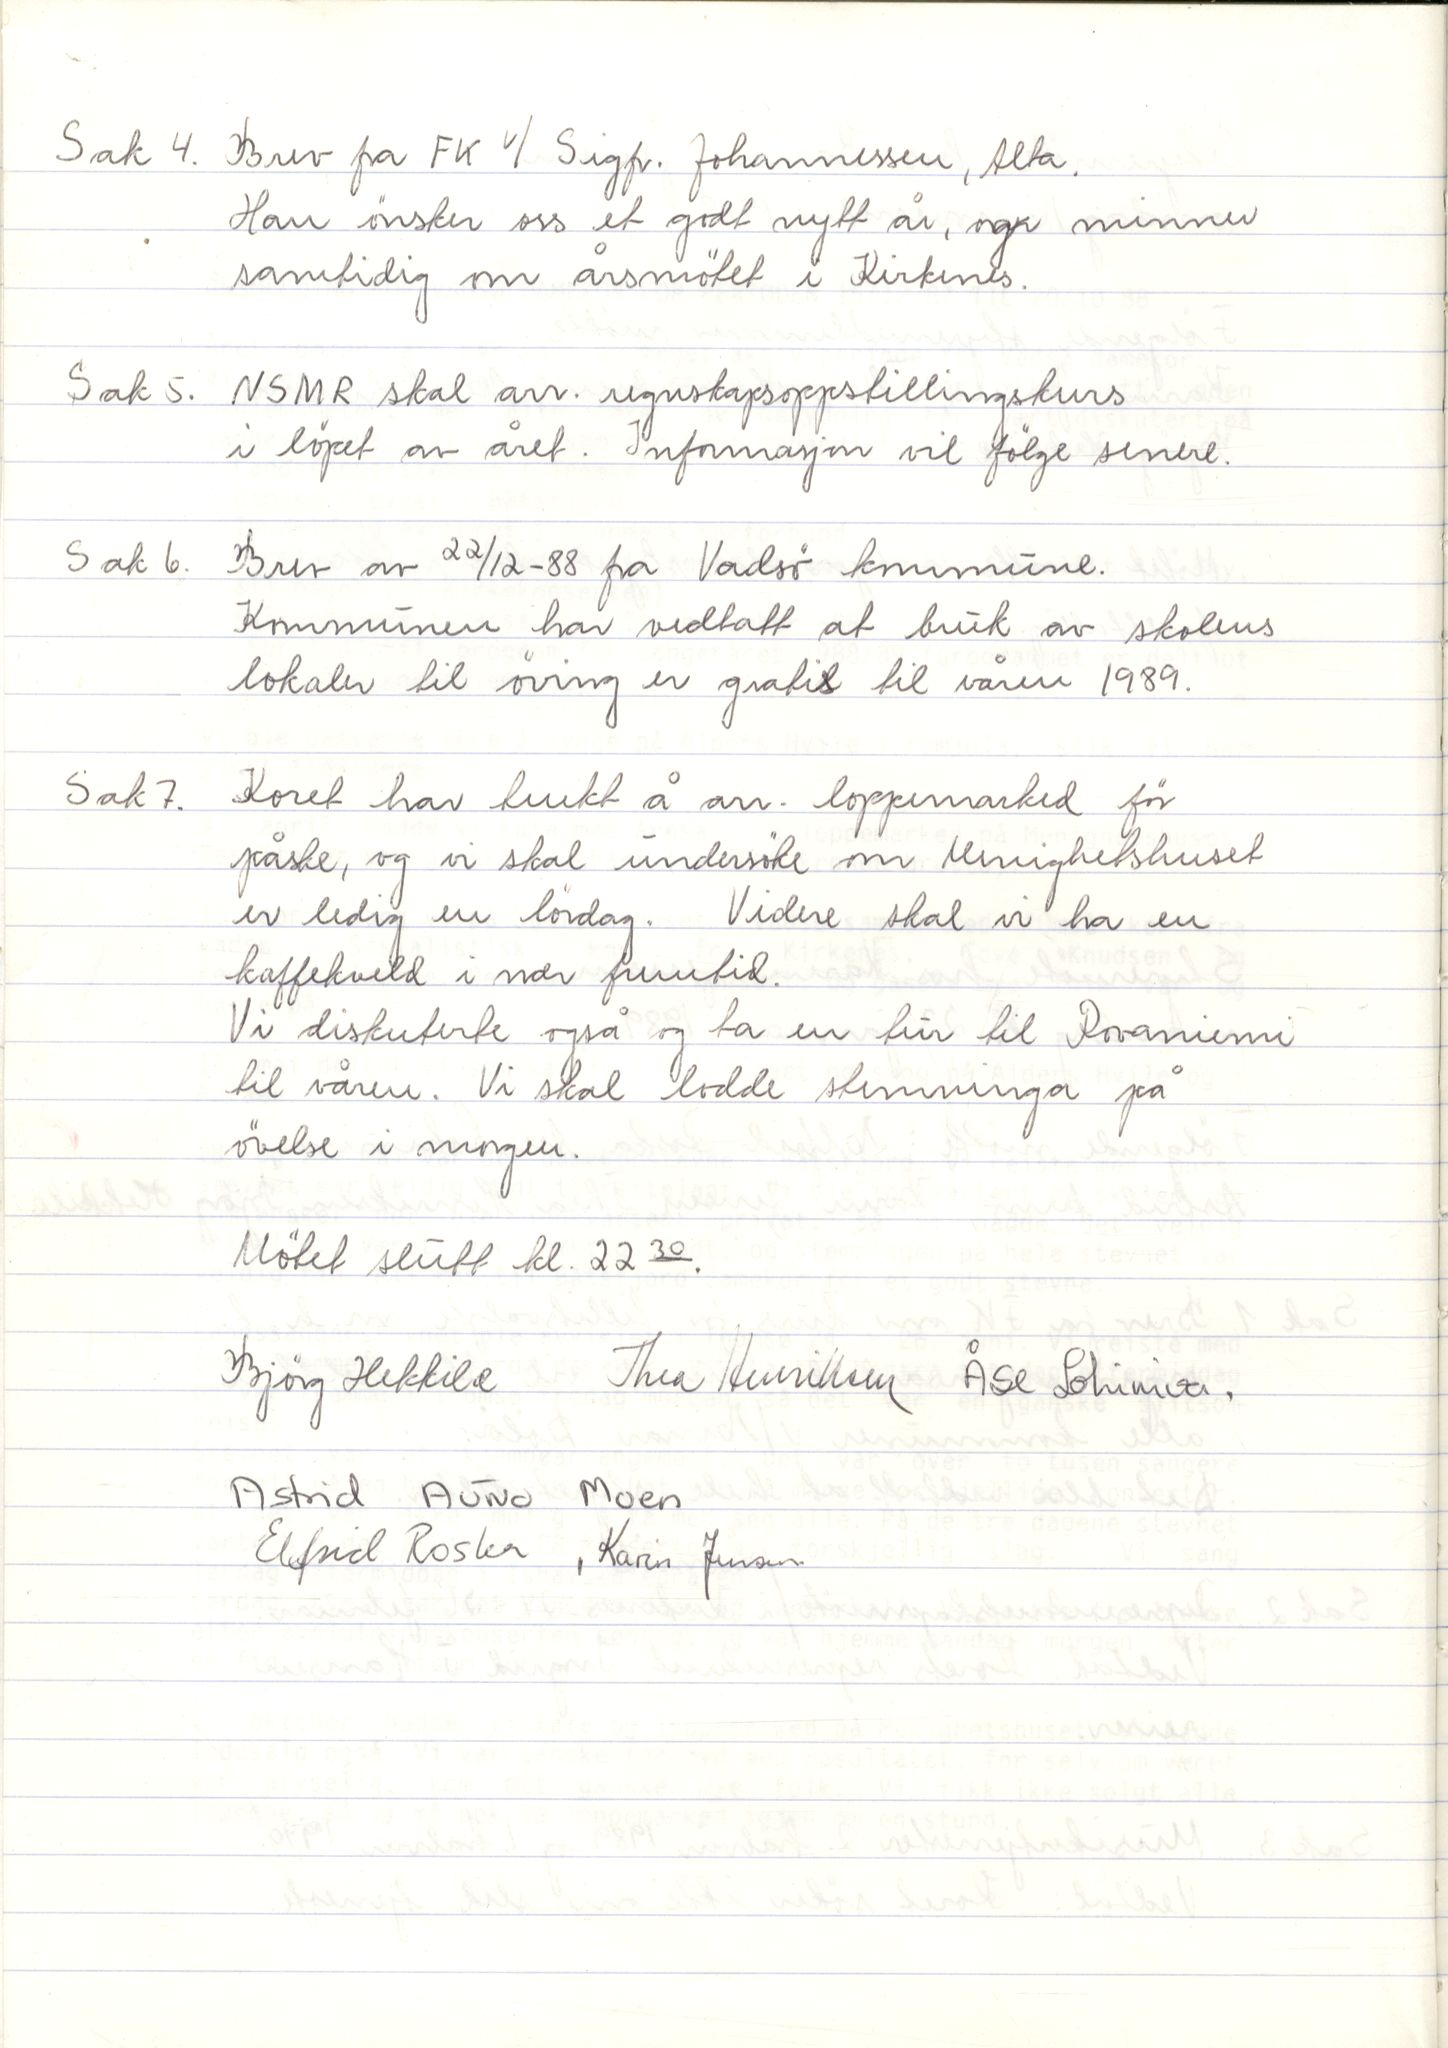 Sak 4. Brev fra FK v/ Sigfr. Johannessen, Alta.
Han önsker oss et godt nytt år, og minner
samtidig om årsmötet i Kirkenes.
Sak 5. NSMR skal arr. regnskapsoppstillingskurs
i löpet av året. Informasjon vil fölge senere.
Sak 6. Brev av 22/12-88 fra Vadsö kommune.
Kommunen har vedtatt at bruk av skolens
lokaler til öving er gratis til våren 1989.
Sak 7. Koret har tenkt å arr. loppemarked för
påske, og vi skal undersöke om Menighetshuset
er ledig en lördag. Videre skal vi ha en
kaffekveld i nær fremtid.
Vi diskuterte også og ta en tur til Rovaniemi
til våren. Vi skal lodde stemninga på
övelse i morgen.
Mötet slutt kl. 22 30.
Björg Hekkila Thea Henriksen Åse Lohiniva.
Astrid Auno Moen
Elfrid Roska, Karin Jensen